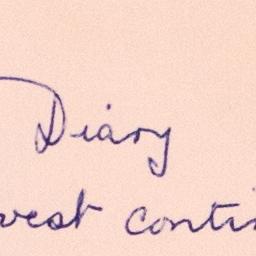 Diary
vest conti